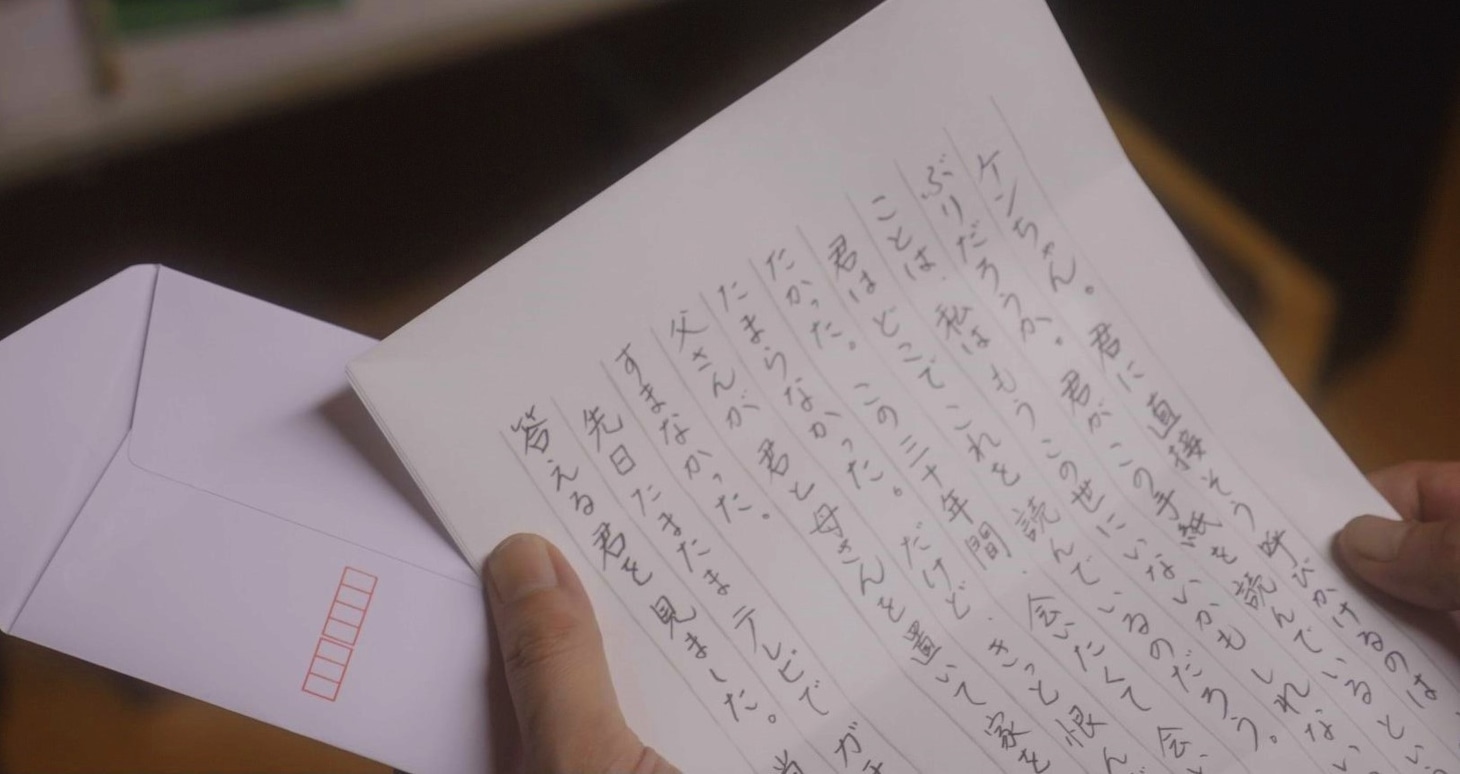 ケンちゃん。君に直接そう呼びかけるのは
ぶりだろうか。君がこの手紙を読んでいるとい
ことは、私はもうこの世にいないかもしれない
君はどこでこれを読んでいるのだろう。
たかった。この三十年間、会いたくて会い
たまらなかった。だけど、きっと恨んで
父さんが君と母さんを置いて家を
すまなかった。
先日たまたまテレビでガ
答える君を見ました。